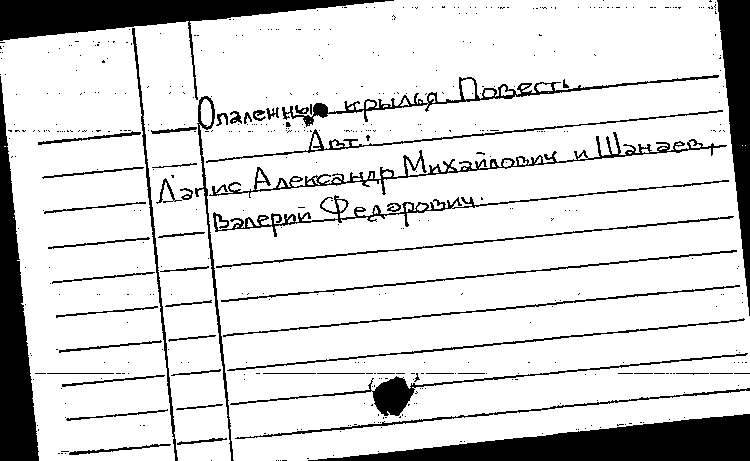 Опаленные крылья. Повесть.
Авт.:
Лапис Александр Михайлович и Шанаев,
Валерий Федорович.